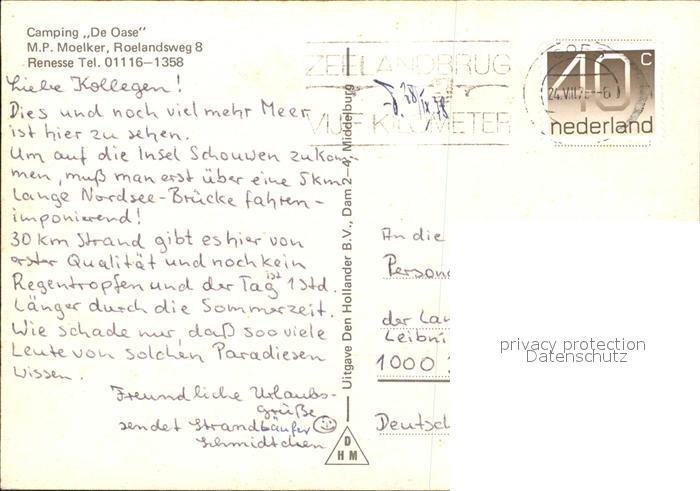 Camping „De Oase"
M.P. Moelker, Roelandsweg 8
Renesse Tel. 01116–1358
Liebe Kollegen!
Dies und noch viel mehr Meer
ist hier zu sehen.
Um auf die Insel Schouwen zukom-
men, muß man erst über eine 5km
lange Nordsee-Brücke fahren -
imponierend!
30 km Strand gibt es hier von
erster Qualität und noch kein
Regentropfen und der Tag ist 1 Std.
Länger durch die Sommerzeit.
Wie schade nur, daß soo viele
Leute von solchen Paradiesen
wissen.
Freundliche Urlaubs-
grüße
sendet Strandläufer
Schmidtchen
Uitgave Den Hollander B.V., Dam 2–4, Middelburg
D
H M
ZEELANDBRUG
VIJF KILOMETER
40 c
nederland
An die
Person
der Lan
Leibni
1000
Deutsch
privacy protection
Datenschutz